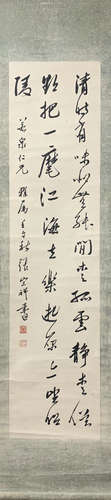 清時有味是無能閒愛孤雲靜愛僧
欲把一麾江海去樂遊原上望昭
陵
華泉仁兄 雅屬 壬午秋 張宗祥書